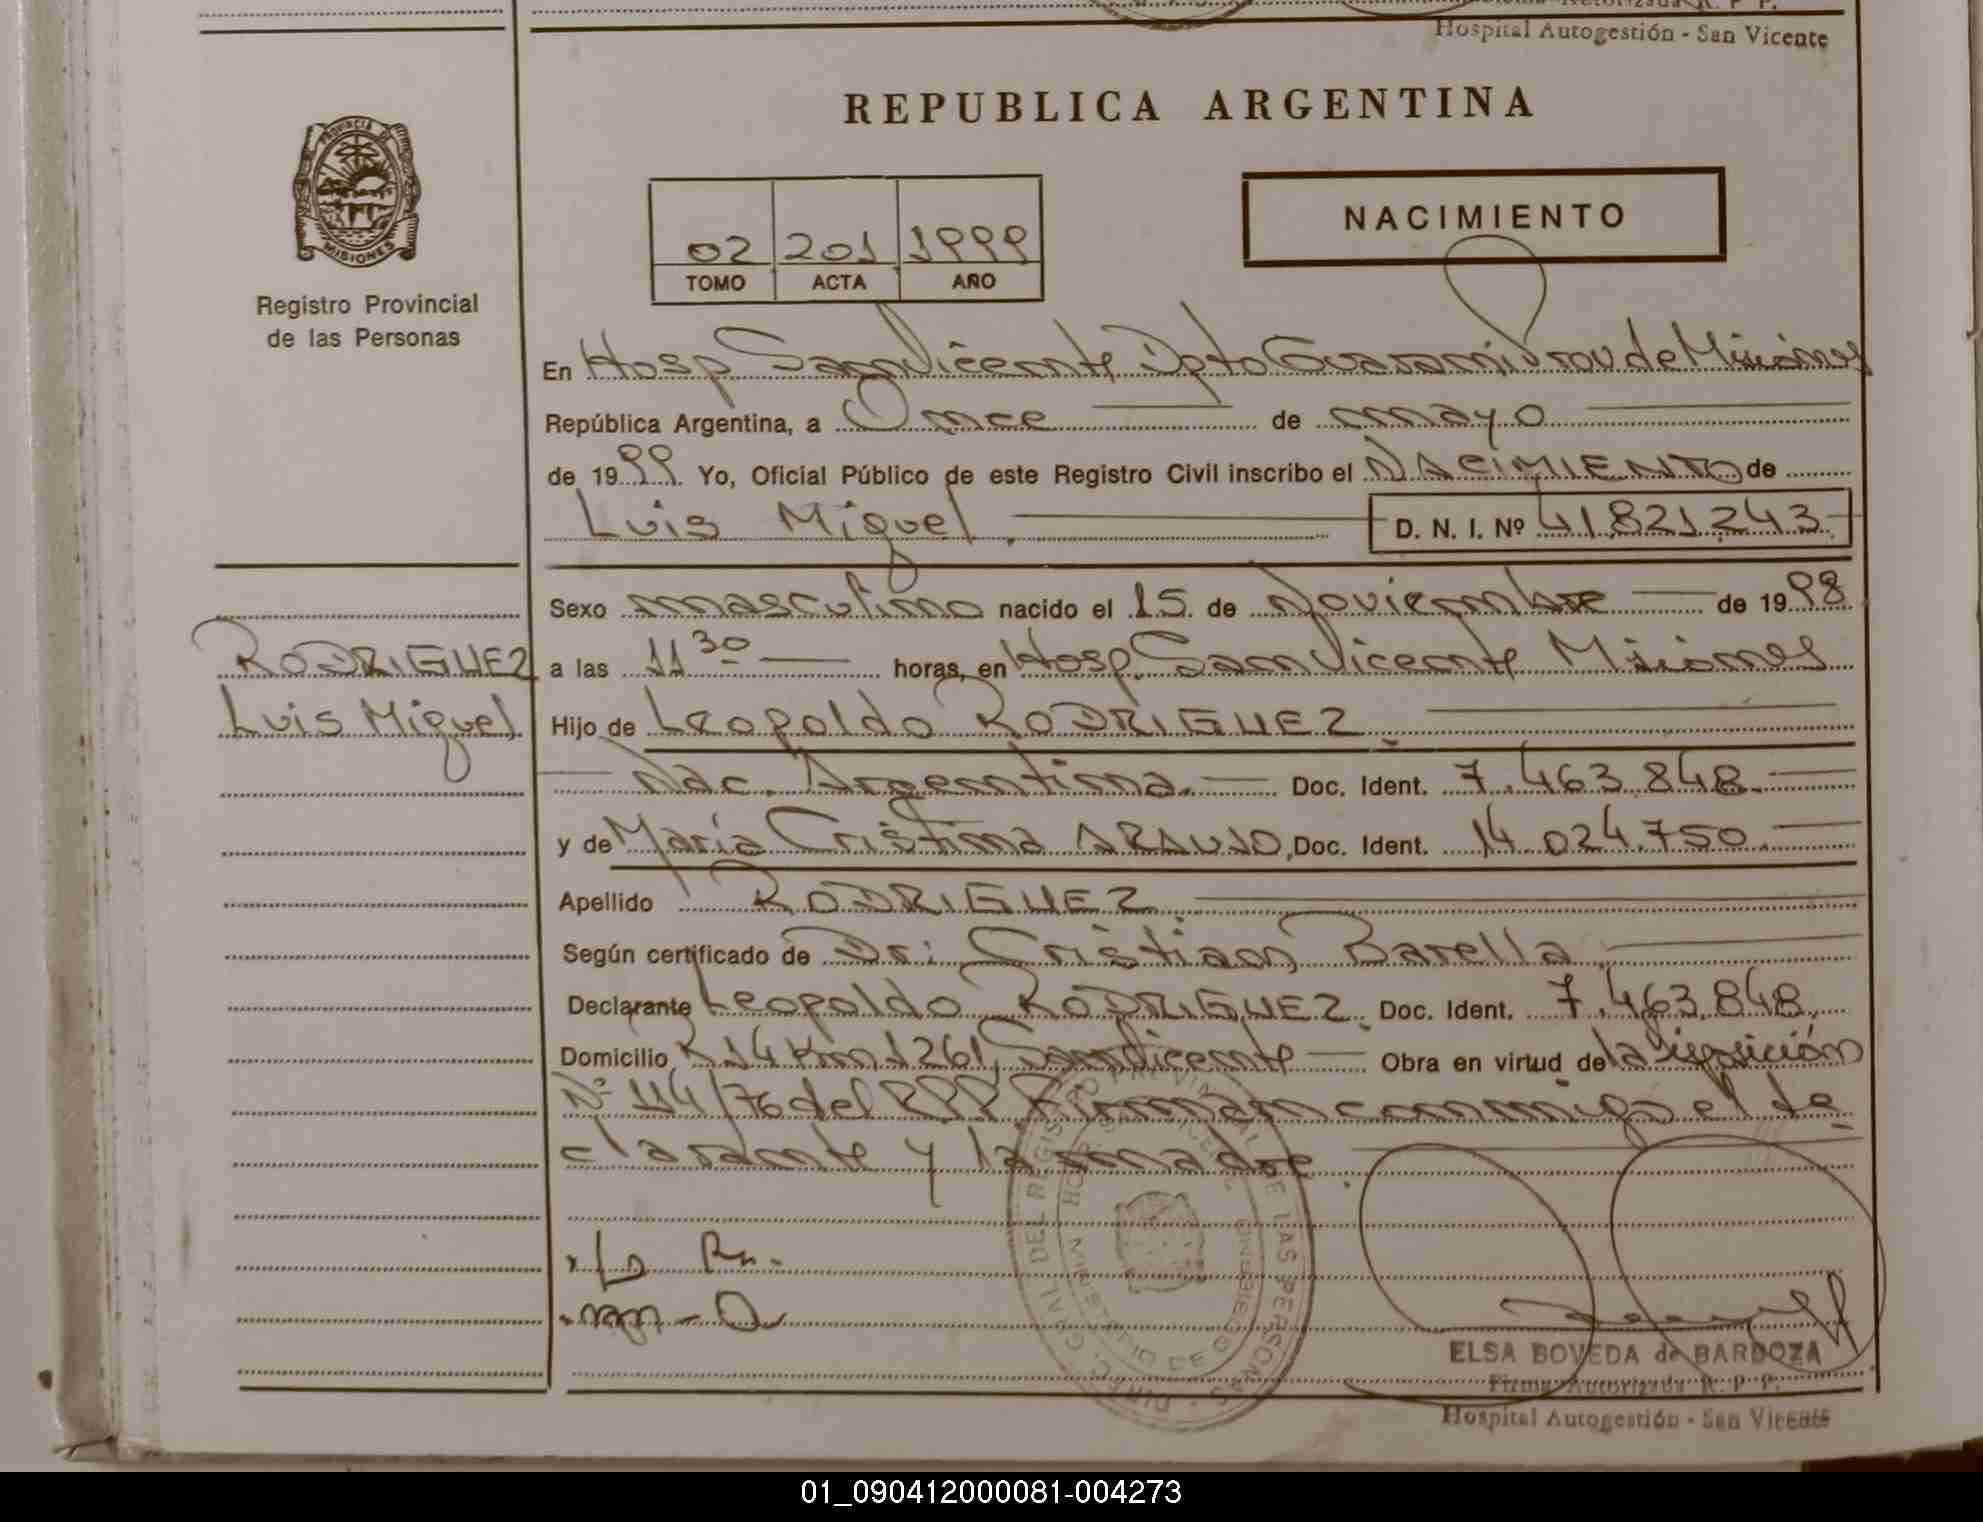 Hospital Autogestión - San Vicente
REPUBLICA ARGENTINA
PROVINCIA DE
MISIONES
Registro Provincial
de las Personas
02 201 1999
TOMO ACTA AÑO
NACIMIENTO
En Hosp. San Vicente Dpto Guaraní Prov de Misiones
República Argentina, a Once de mayo
de 1999 Yo, Oficial Público de este Registro Civil inscribo el NACIMIENTO de
Luis Miguel. D. N. I. Nº 41.821.243.
Sexo masculino nacido el 15 de Noviembre de 1998
RODRIGUEZ
Luis Miguel
a las 11 30 horas, en Hosp. San Vicente Misiones
Hijo de Leopoldo RODRIGUEZ.
Nac. Argentina. Doc. Ident. 7.463.848.
y de María Cristina ARAUJO, Doc. Ident. 14.024.750.
Apellido RODRIGUEZ
Según certificado de Dr: Cristian Barella.
Declarante Leopoldo RODRIGUEZ. Doc. Ident. 7.463.848.
Domicilio R 14 Km 1261, San Vicente Obra en virtud de la disposición
Nº 114/76 del RPP. Firman conmigo el de
clarante y la madre.
DIREC. GRAL. DEL REGISTRO PROVINCIAL DE LAS PERSONAS
MINISTERIO DE GOBIERNO
ELSA BOVEDA de BARBOZA
Firma Autorizada R. P P.
Hospital Autogestión - San Vicente
01_090412000081-004273